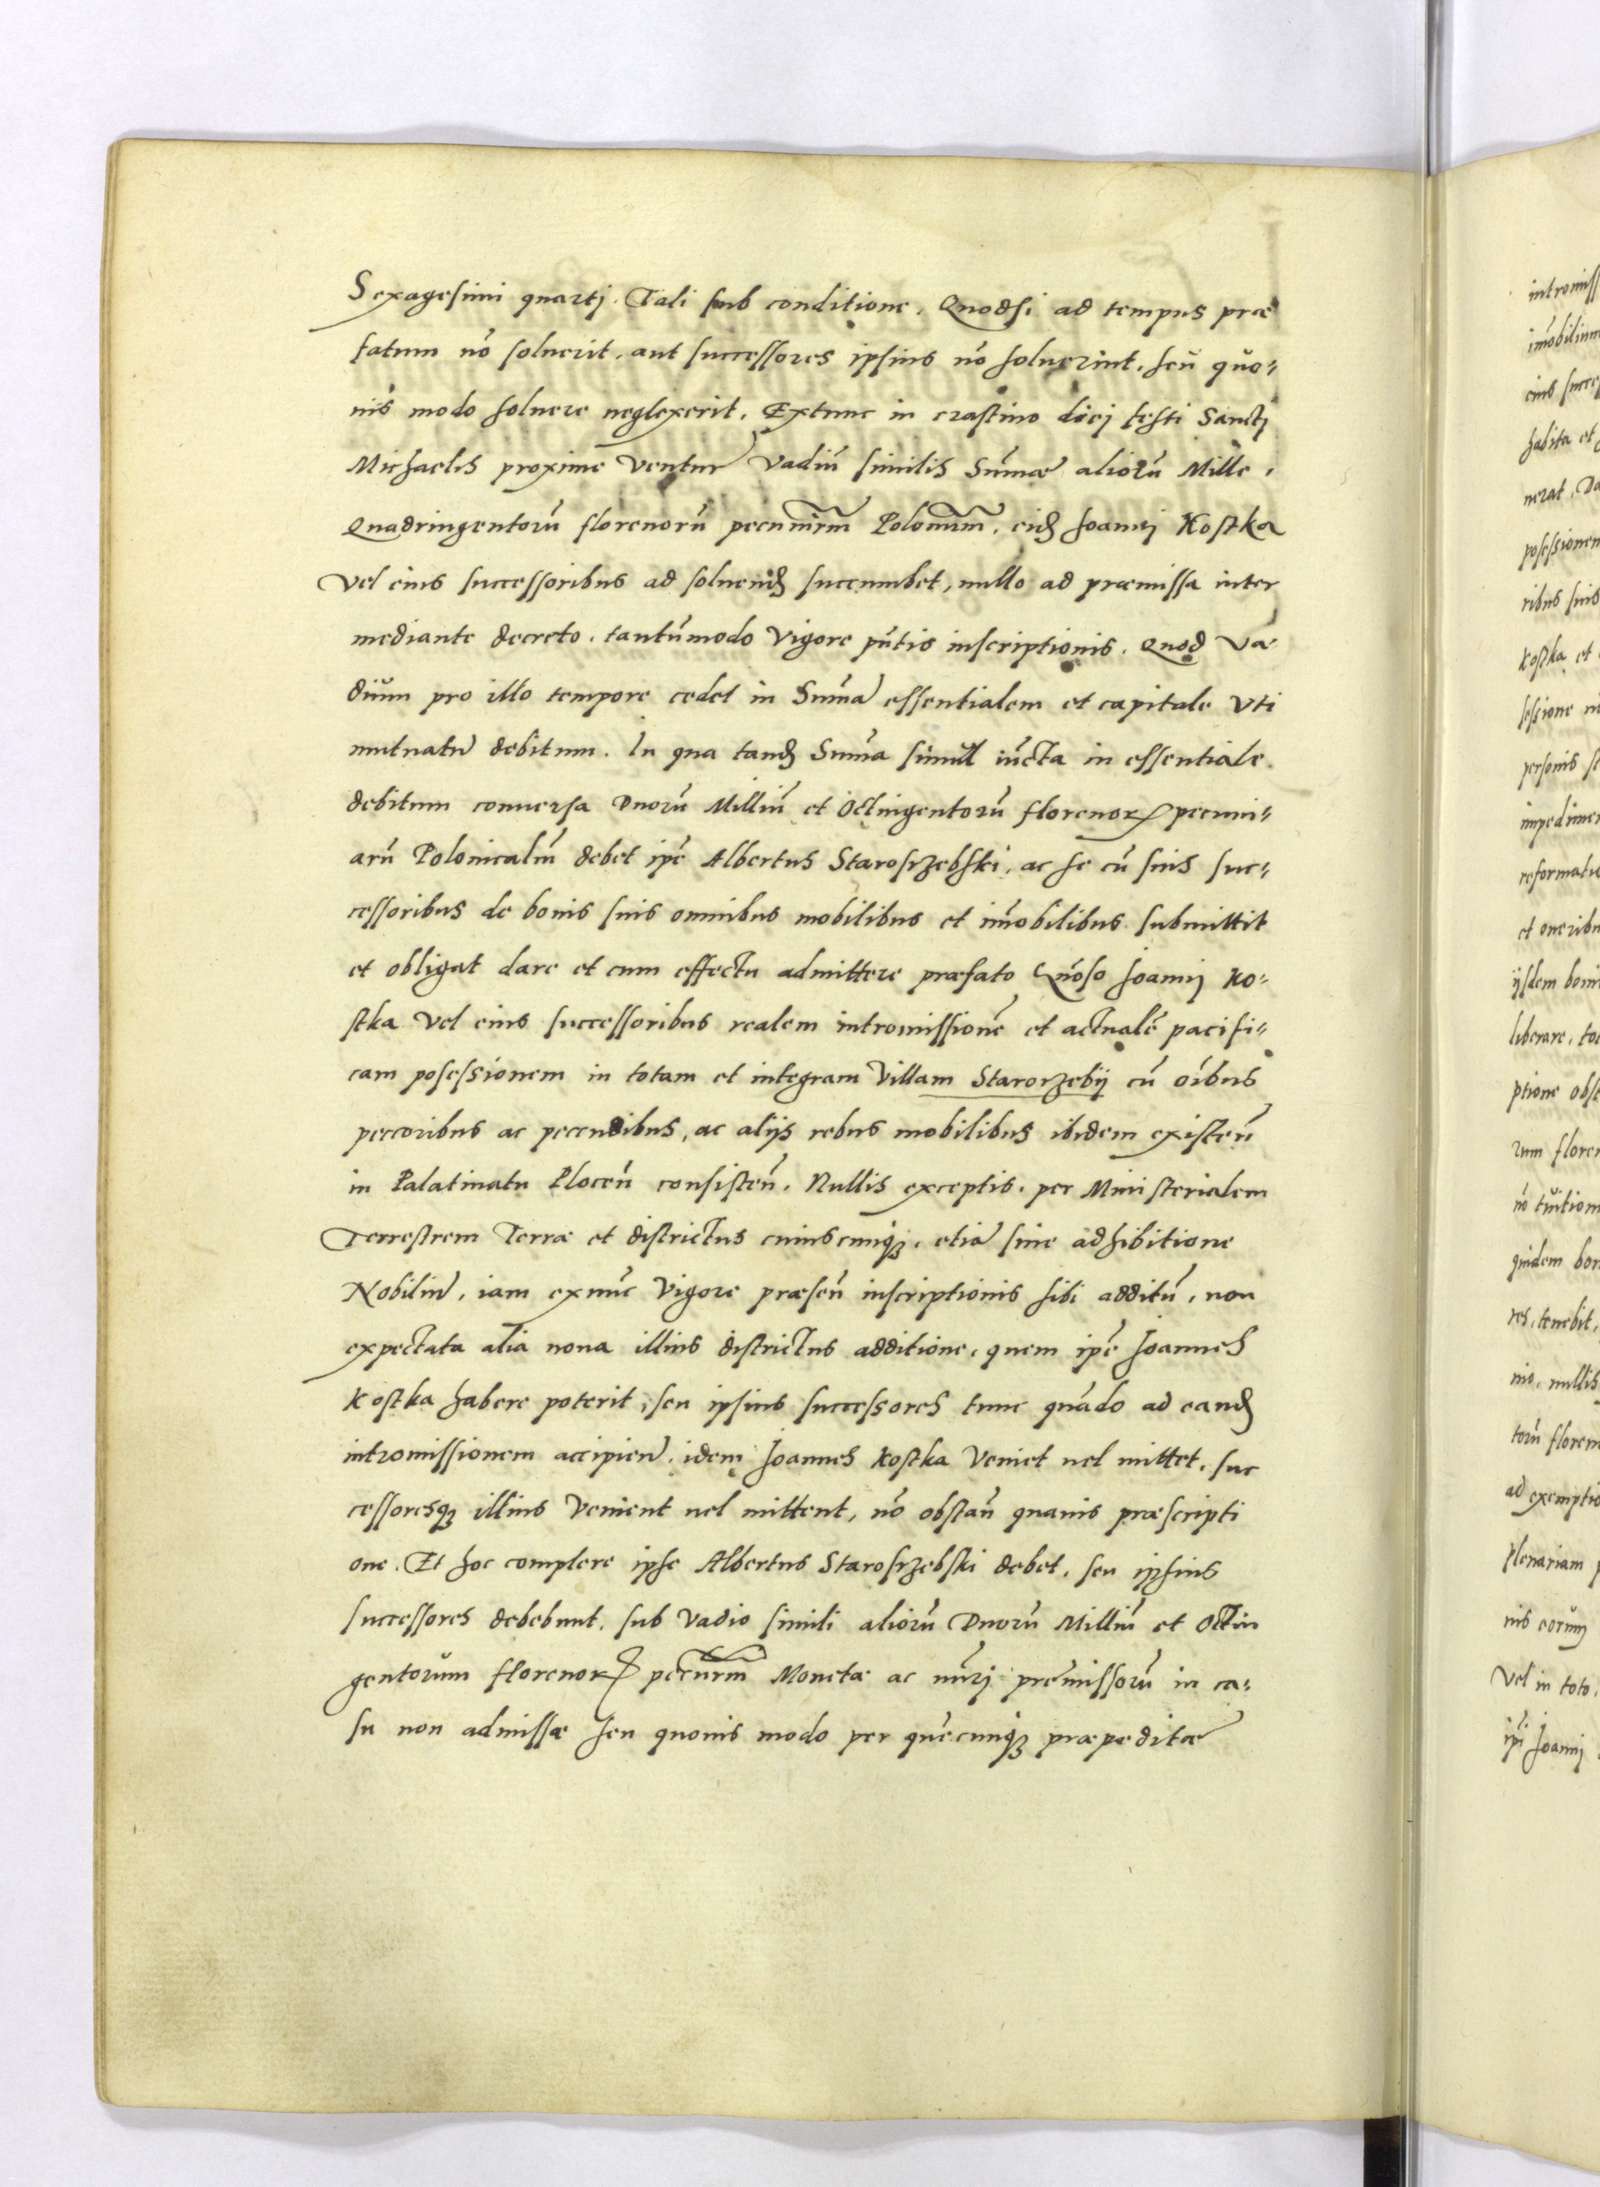 Sexagesimi quartj. Tali sub conditione. Quodsi ad tempus præ
fatum nō soluerit, aut successores ipsius nō soluerint, seŭ quo-
uis modo soluere neglexerit. Extunc in crastino diej festi Sanctj
Michaelis proxime ventur vadiū similis Sum̄æ aliorū Mille,
Quadringentorū florenorū pecuniarm̄ Polonicalm̄, eid Joannj Kostka
Vel eius successoribus ad soluend succumbet, nullo ad præmissa inter
mediante decreto, tantūmodo Vigore pn̄tis inscriptionis. Quod Va
dium pro illo tempore cedet in Sum̄a essentialem et capitale Vti
mutuatu debitum. In qua tand Sum̄a simul iūcta in essentiale
debitum conuersa Duorū Milliū et Octingentorū florenor pecuni-
arū Polonicaliū debet ipē Albertus Starosrzebski, ac se cū suis suc-
cessoribus de bonis suis omnibus mobilibus et im̄obilibus submittit
et obligat dare et cum effectu admittere præfato Gn̄oso Joannj Ko-
stka Vel eius successoribus realem intromissionē et actualē pacifi-
cam posessionem in totam et integram Villam Starorzebij cū oībus
pecoribus ac pecudibus, ac alijs rebus mobilibus ibidem existen̄
in Palatinatu Plocen̄ consisten̄. Nullis exceptis, per Ministerialem
Terrestrem Terræ et districtus cuiuscunq;, etia sine adhibitione
Nobiliu, iam exnūc Vigore præsen̄ inscriptionis sibi additū, non
expectata alia noua illius districtus additione, quem ipē Joannes
Kostka habere poterit, seu ipsius successores tunc quādo ad eand
intromissionem accipien. idem Joannes Kostka Veniet uel mittet, suc
cessoresq; illius Venient uel mittent, nō obstan̄ quauis præscripti
one. Et hoc complere ipse Albertus Starosrzebski debet, seu ipsius
successores debebunt, sub vadio simili aliorū Duorū Milliū et Octin
gentorum florenor pecunrm̄ Monetæ ac nūrj premissorū in ca-
su non admissæ seu quouis modo per quēcunq; præpeditæ